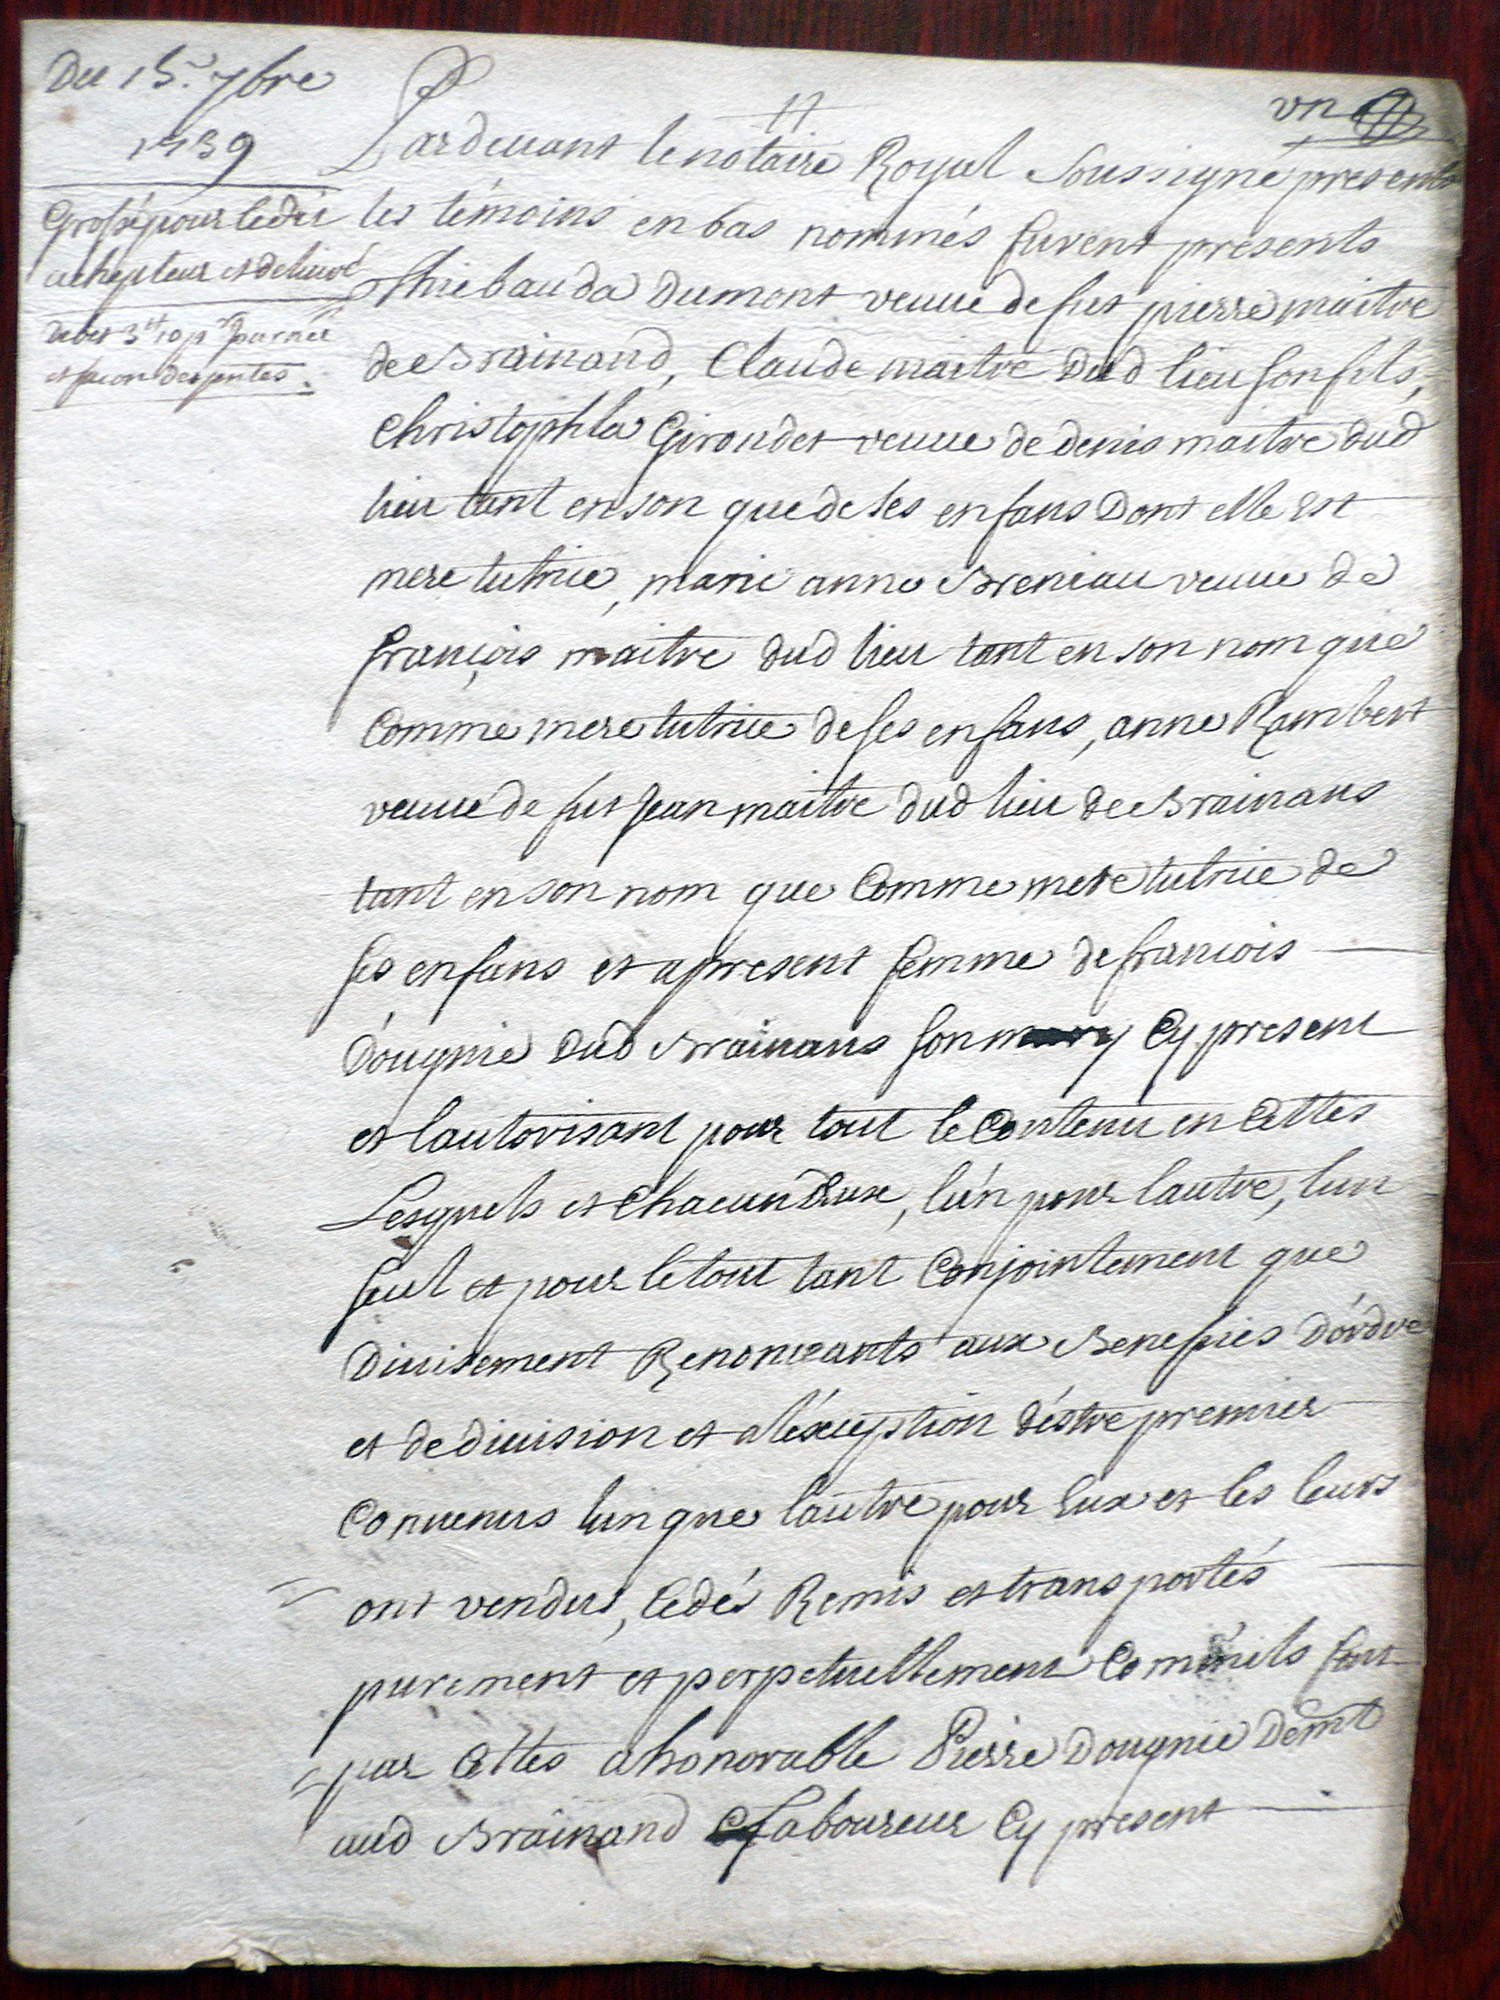 Du 15.e 7bre
1739
Grossé pour ledit
achepteur et deliuré
vn
Pardeuant le notaire Royal soussigné presents
les témoins en bas nommés furent presents
Thiebauda Dumont veuue de fut pierre maitre
de Brainand, Claude maitre dud lieu son fils,
Christophla Girondet veuue de denis maitre dud
lieu tant en son que de ses enfans Dont elle est
mere tutrice, marie anne Breniau veuue de
françois maitre dud lieu tant en son nom que
Comme mere tutrice de ses enfans, anne Rambert
veuue de fut Jean maitre dud lieu de Brainans
tant en son nom que Comme mere tutrice de
ses enfans et apresent femme de francois
Dougnie dud Brainans son mary Cy present
et lautorisant pour tout le Contenu en Cettes
Lesquels et Chacun deux, lún pour lautre, lun
seul et pour le tout tant Conjointement que
Diuisement Renoncants aux Benefices Dórdre
et de diuision et a léxception déstre premier
Conuenus lun que lautre pour Eux et les leurs
ont vendus, Cedés Remis et transportés
purement et perpetuellement Comm'ils font
par Cettes a honorable Pierre Dougnie Demt
aud Brainand Laboureur Cy present